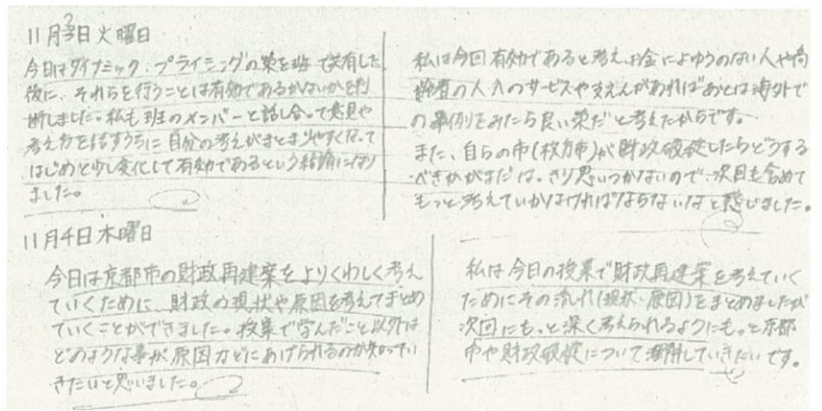 11月2日火曜日
今日はダイナミック・プライシングの策を班で共有した
後に、それらを行うことは有効であるかないかを判
断しました。私も班のメンバーと話し合って意見や
考え方を話すうちに自分の考えがまとまりやすくなって
はじめと少し変化して有効であるという結論になり
ました。
私は今回有効であると考え、お金によゆうのない人や高
齢者の人へのサービスや支えんがあればあとは海外で
の事例をみたら良い策だと考えたからです。
また、自らの市(枚方市)が財政破綻したらどうする
べきかがまだはっきり思いつかないので、次回も含めて
もっと考えていかなければならないなと感じました。
11月4日木曜日
今日は京都市の財政再建案をよりくわしく考え
ていくために、財政の現状や原因を考えてまとめ
ていくことができました。授業で学んだこと以外は
どのような事が原因などにあげられるのか知ってい
きたいと思いました。
私は今日の授業で財政再建案を考えていく
ためにその流れ(現状・原因)をまとめましたが
次回にもっと深く考えられるようにもっと京都
市や財政破綻について理解していきたいです。